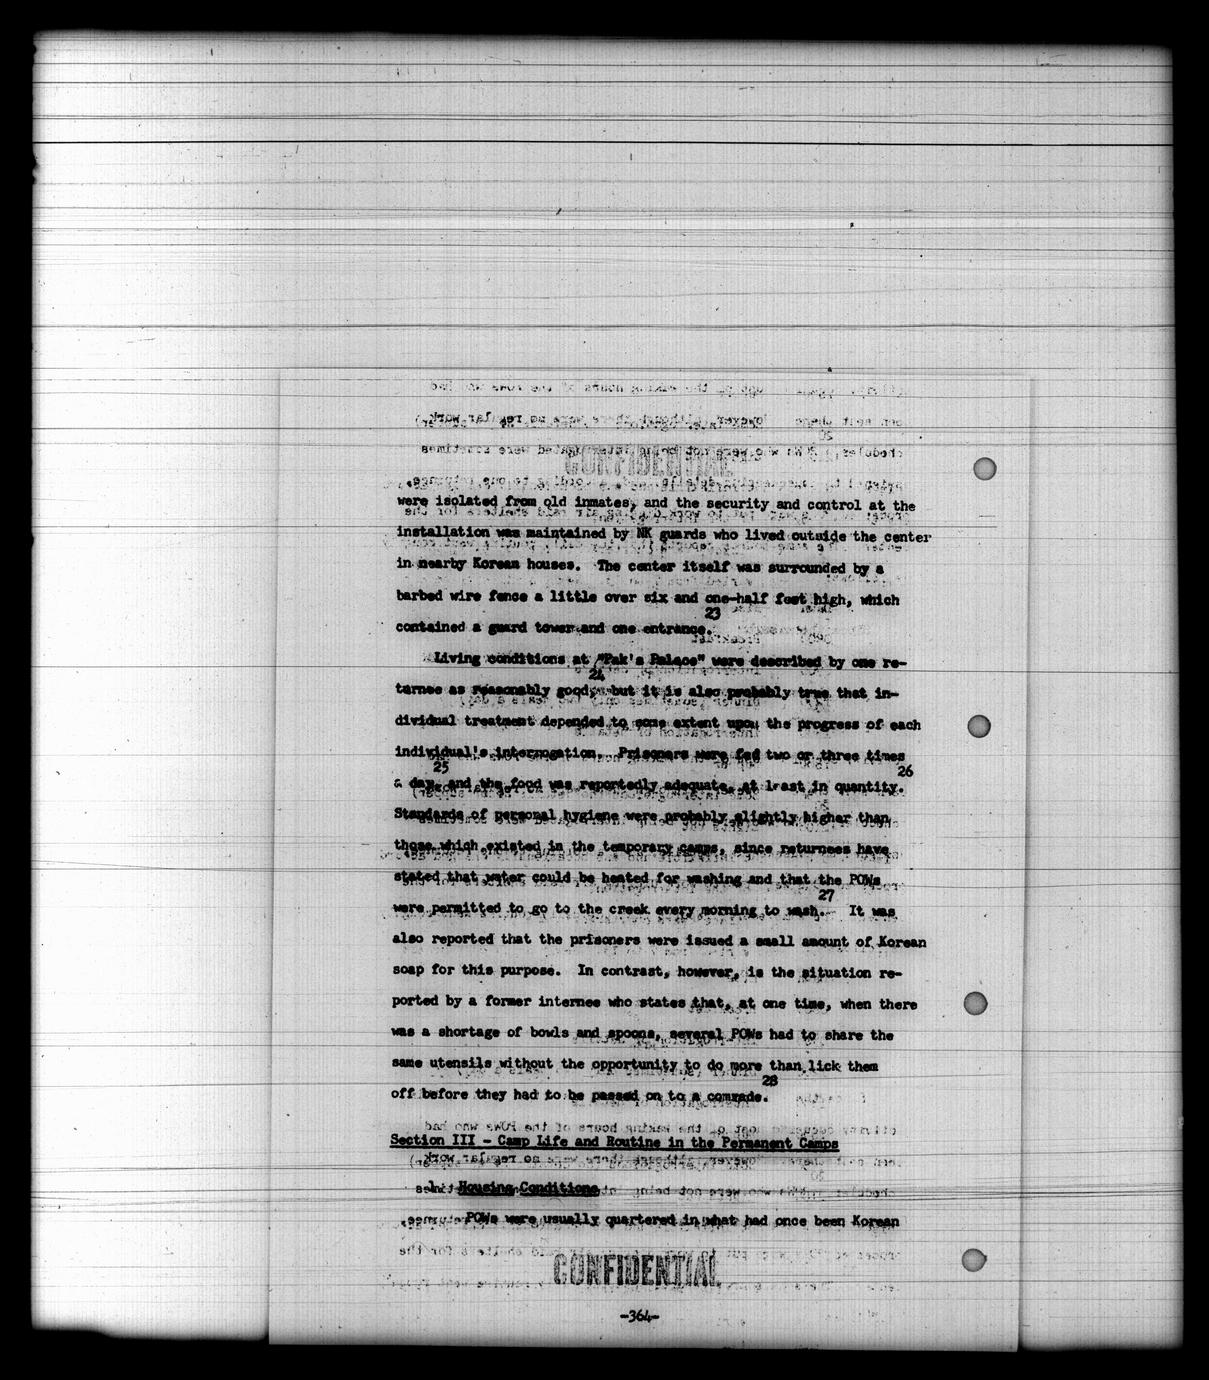 CONFIDENTIAL
were isolated from old inmates, and the security and control at the
installation was maintained by NK guards who lived outside the center
in nearby Korean houses. The center itself was surrounded by a
barbed wire fence a little over six and one-half feet high, which
23
contained a guard tower and one entrance.
Living conditions at "Pak's Palace" were described by one re-
24
turnee as reasonably good, but it is also probably true that in-
dividual treatment depended to some extent upon the progress of each
individual's interrogation. Prisoners were fed two or three times
25 26
a day, and the food was reportedly adequate, at least in quantity.
Standards of personal hygiene were probably slightly higher than
those which existed in the temporary camps, since returnees have
stated that water could be heated for washing and that the POWs
27
were permitted to go to the creek every morning to wash. It was
also reported that the prisoners were issued a small amount of Korean
soap for this purpose. In contrast, however, is the situation re-
ported by a former internee who states that, at one time, when there
was a shortage of bowls and spoons, several POWs had to share the
same utensils without the opportunity to do more than lick them
28
off before they had to be passed on to a comrade.
Section III - Camp Life and Routine in the Permanent Camps
1. Housing Conditions
POWs were usually quartered in what had once been Korean
CONFIDENTIAL
-364-